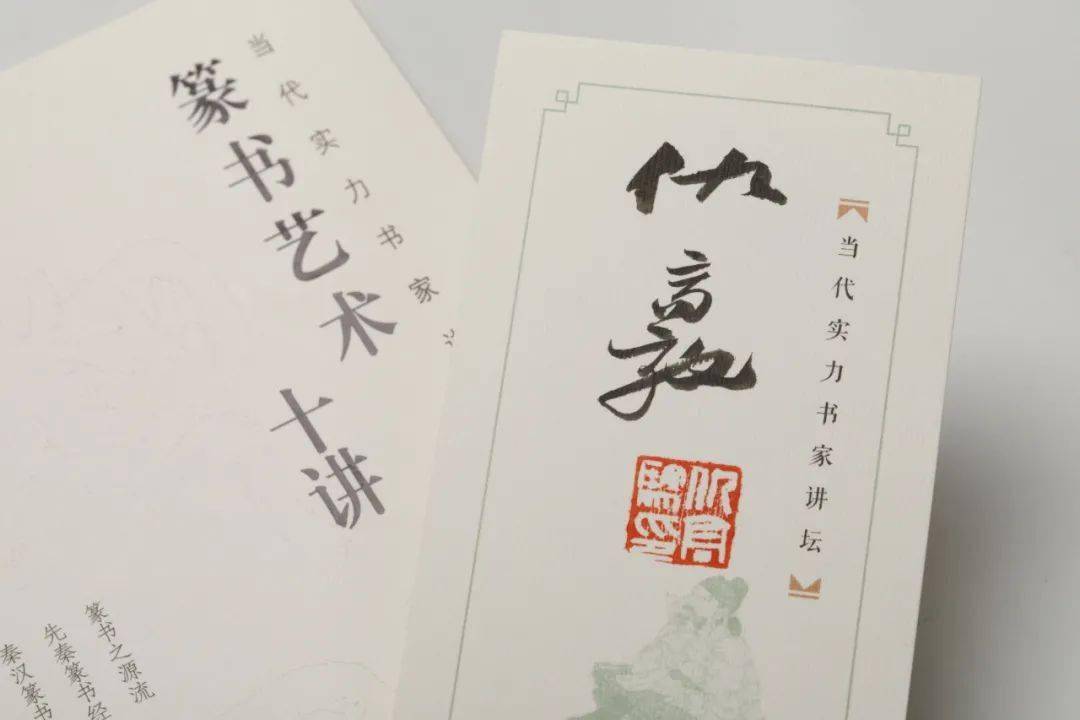 当代实力书家
篆书艺术
十讲
篆书之源流
先秦篆书经
秦汉篆书
当代实力书家讲坛
仇高驰
仇高馳印